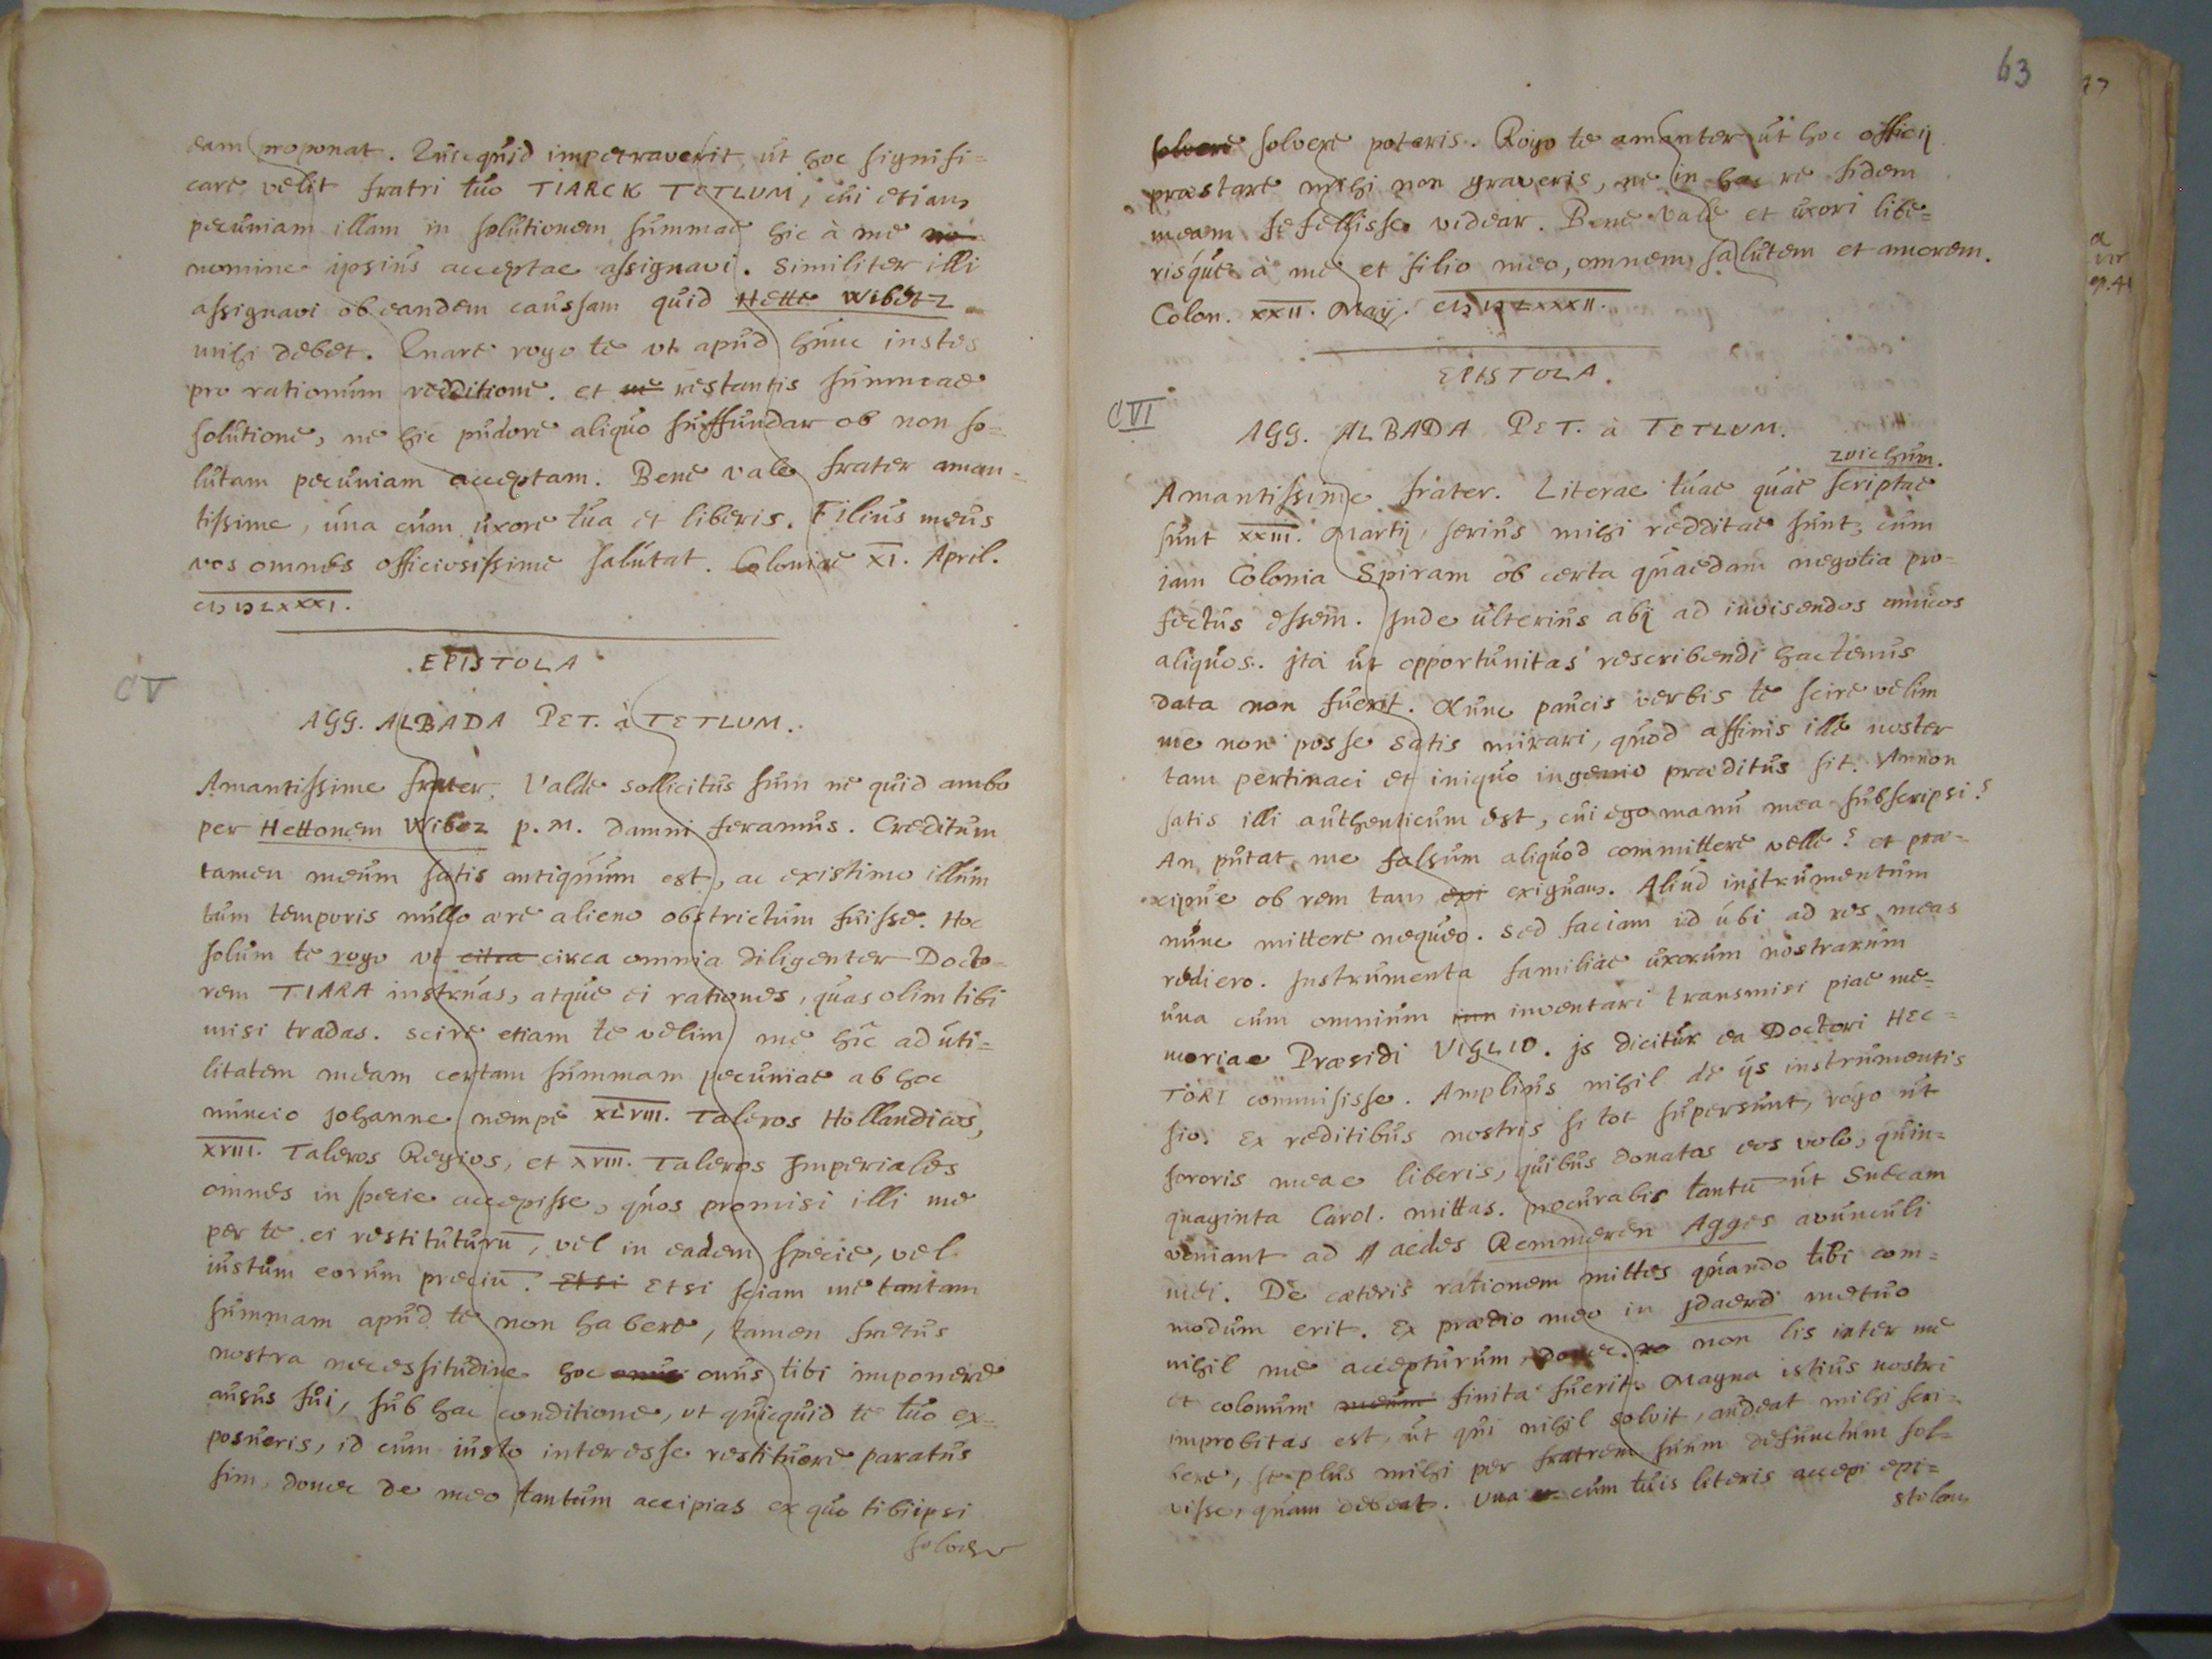 eam proponat. Quicquid impetraverit ut hoc signifi=
care velit fratri tuo TIARCK TETLUM, cui etiam
pecuniam illam in solutionem summae hic à me no
nomine ipsius acceptae assignavi. Similiter illi
assignavi ob eandem caussam quid Hette Wibez
mihi debet. Quare rogo te ut apud hunc instes
pro rationum redditione. et ne restantis summae
solutione, ne hic pudore aliquo suffundar ob non so=
lutam pecuniam acceptam. Bene vale frater aman=
tissime, una cum uxore tua et liberis. Filius meus
vos omnes officiosissime salutat. Coloniae XI. April.
CIↃ IↃ LXXXI.
EPISTOLA
CV
AGG. ALBADA PET. à TETLUM.
Amantissime frater, Valde sollicitus sum ne quid ambo
per Hettonem Wibez p.m. damni feramus. Creditum
tamen meum satis antiquum est, ac existimo illum
tum temporis nullo aere alieno obstrictum fuisse. Hoc
solum te rogo ut citra circa omnia diligenter Docto=
rem TIARA instruas, atque ei rationes, quas olim tibi
misi tradas. scire etiam te velim me hîc ad uti=
litatem meam certam summam pecuniae ab hoc
nuncio Johanne nempe XLVIII. Taleros Hollandicos,
XVIII. Taleros Regios, et XVIII. Taleros Imperiales
omnes in specie accepisse, quos promisi illi me
per te ei restituturū, vel in eadem specie, vel
iustum eorum preciū. Etsi Etsi sciam me tantam
summam apud te non habere, tamen fretus
nostra necessitudine hoc onus onus tibi imponere
ausus fui, sub hac conditione, ut quicquid te tuo ex=
posueris, id cum iusto interesse restituere paratus
sim, donec de meo tantum accipias ex quo tibiipsi
solvere
63
solvere solvere poteris. Rogo te amanter ut hoc officij
praestare mihi non graveris, ne in hac re fidem
meam fefellisse videar. Bene vale et uxori libe=
risque à me et filio meo, omnem salutem et amorem.
Colon. XXII. Maij. CIↃ IↃ LXXXII.
EPISTOLA.
CVI
AGG. ALBADA PET. à TETLUM.
zuichum.
Amantissime frater. Literae tuae quae scriptae
sunt XXIII. Martij, serius mihi redditae sunt, cum
iam Colonia Spiram ob certa quaedam negotia pro=
fectus essem. Inde ulterius abij ad invisendos amicos
aliquos. ita ut opportunitas rescribendi hactenus
data non fuerit. Nunc paucis verbis te scire velim
me non posse satis mirari, quod affinis ille noster
tam pertinaci et iniquo ingenio praeditus sit. Annon
satis illi authenticum est, cui ego manu mea subscripsi?
An putat me falsum aliquod committere velle? et prae=
cipue ob rem tam exi exiguam. Aliud instrumentum
nunc mittere nequeo. sed faciam id ubi ad res meas
rediero. Instrumenta familiae uxorum nostrarum
una cum omnium inn inventari transmisi piae me=
moriae Praesidi VIGLIO. is dicitur ea Doctori HEC=
TORI commisisse. Amplius nihil de ijs instrumentis
scio. Ex reditibus nostris si tot supersunt, rogo ut
sororis meae liberis, quibus donatos eos volo, quin=
quaginta Carol. mittas. procurabis tantū ut Snecam
veniant ad aedes Remmeren Agges avunculi
mei. De caeteris rationem mittes quando tibi com=
modum erit. Ex praedio meo in Jdaerd metuo
nihil me accepturum, donec non lis inter me
et colonum meum finita fuerit. Magna istius nostri
improbitas est, ut qui nihil solvit, audeat mihi scri=
bere, se plus mihi per fratrem suum defunctum sol=
visse, quam debeat. Una cum tuis literis accepi epi=
stolam